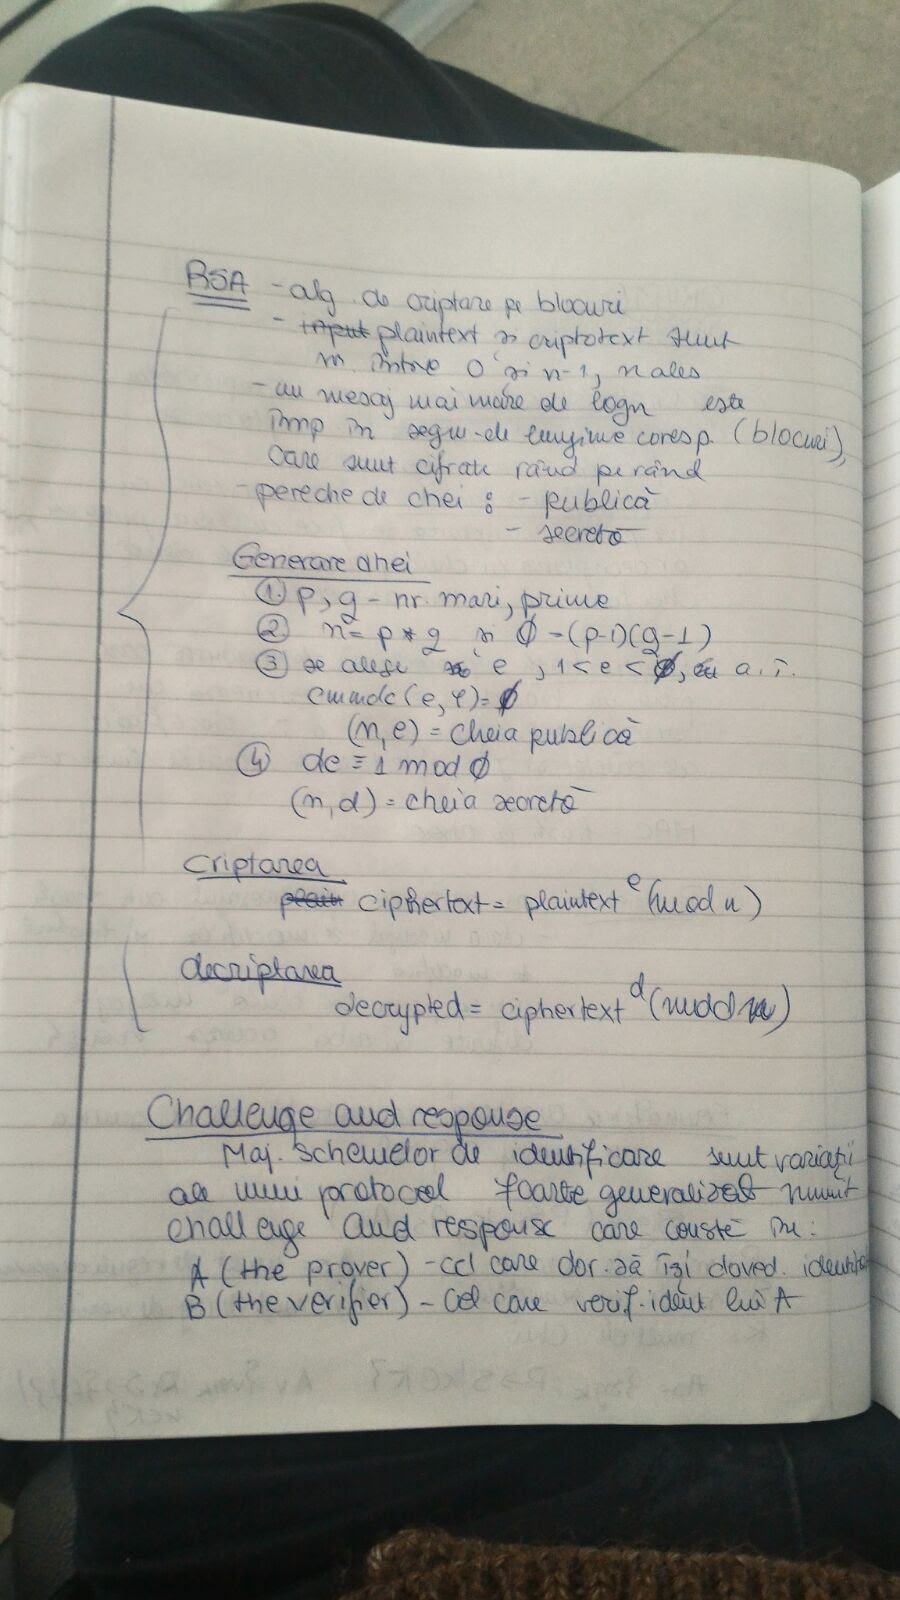 RSA - alg de criptare pe blocuri
- input plaintext și criptotext sunt
nr. între 0 și n-1, n ales
- un mesaj mai mare de logn este
împ în segm. de lungime coresp. (blocuri),
care sunt cifrate rând pe rând
- pereche de chei : - publică
- secretă
Generare chei
① p, q - nr. mari, prime
② n = p * q și ϕ - (p-1)(q-1)
③ se alege e , 1 < e < ϕ, a.î.
cmmdc (e, φ) = ϕ
(n, e) = cheia publică
④ de ≡ 1 mod ϕ
(n, d) = cheia secretă
Criptarea
plain ciphertext = plaintext^e (mod n)
decriptarea
decrypted = ciphertext^d (mod n)
Challenge and response
Maj. schemelor de identificare sunt variații
ale unui protocol foarte generalizat numit
challenge and response care constă în:
A (the prover) - cel care dor. să își doved. identitatea
B (the verifier) - cel care verif. ident lui A